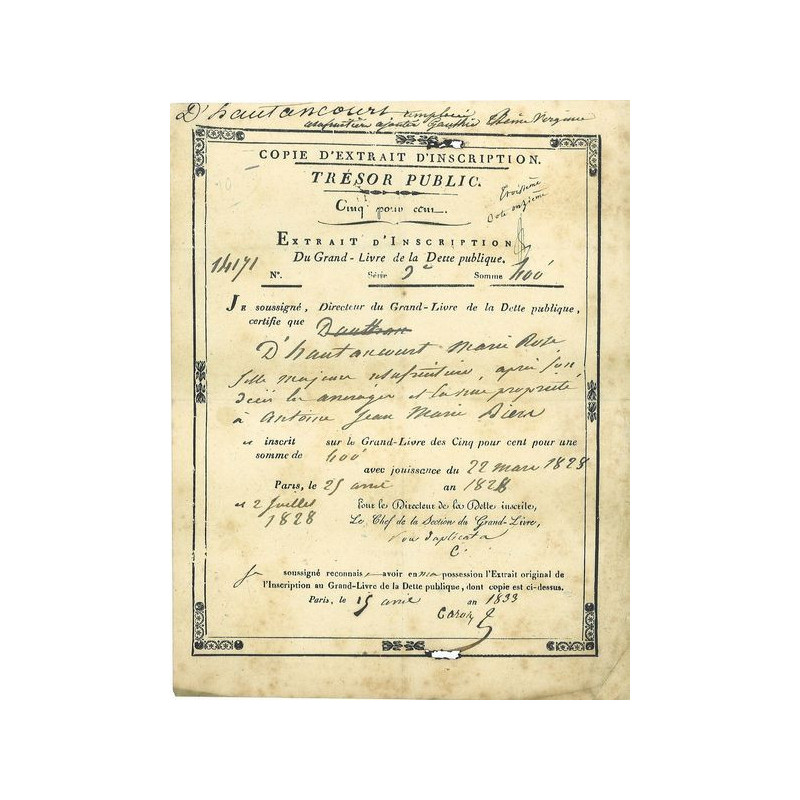 D'hautancourt
COPIE D'EXTRAIT D'INSCRIPTION.
TRÉSOR PUBLIC.
Cinq pour cent.
troisième
EXTRAIT D'INSCRIPTION
Du Grand-Livre de la Dette publique.
14171
N°. Série 9e Somme 400
JE soussigné, Directeur du Grand-Livre de la Dette publique,
certifie que
D'hautancourt Marie Rose
fille majeure usufruitière, après son
décès les arrérages et la nue propriété
à Antoine Jean Marie
est inscrit sur le Grand-Livre des Cinq pour cent pour une
somme de 400
avec jouissance du 22 mars 1828
Paris, le 25 avril an 1828
et 2 juillet
1828
Pour le Directeur de la Dette inscrite,
Le Chef de la Section du Grand-Livre,
Pour duplicata
C
Je soussigné reconnais avoir en ma possession l'Extrait original de
l'Inscription au Grand-Livre de la Dette publique, dont copie est ci-dessus.
Paris, le 15 avril an 1833